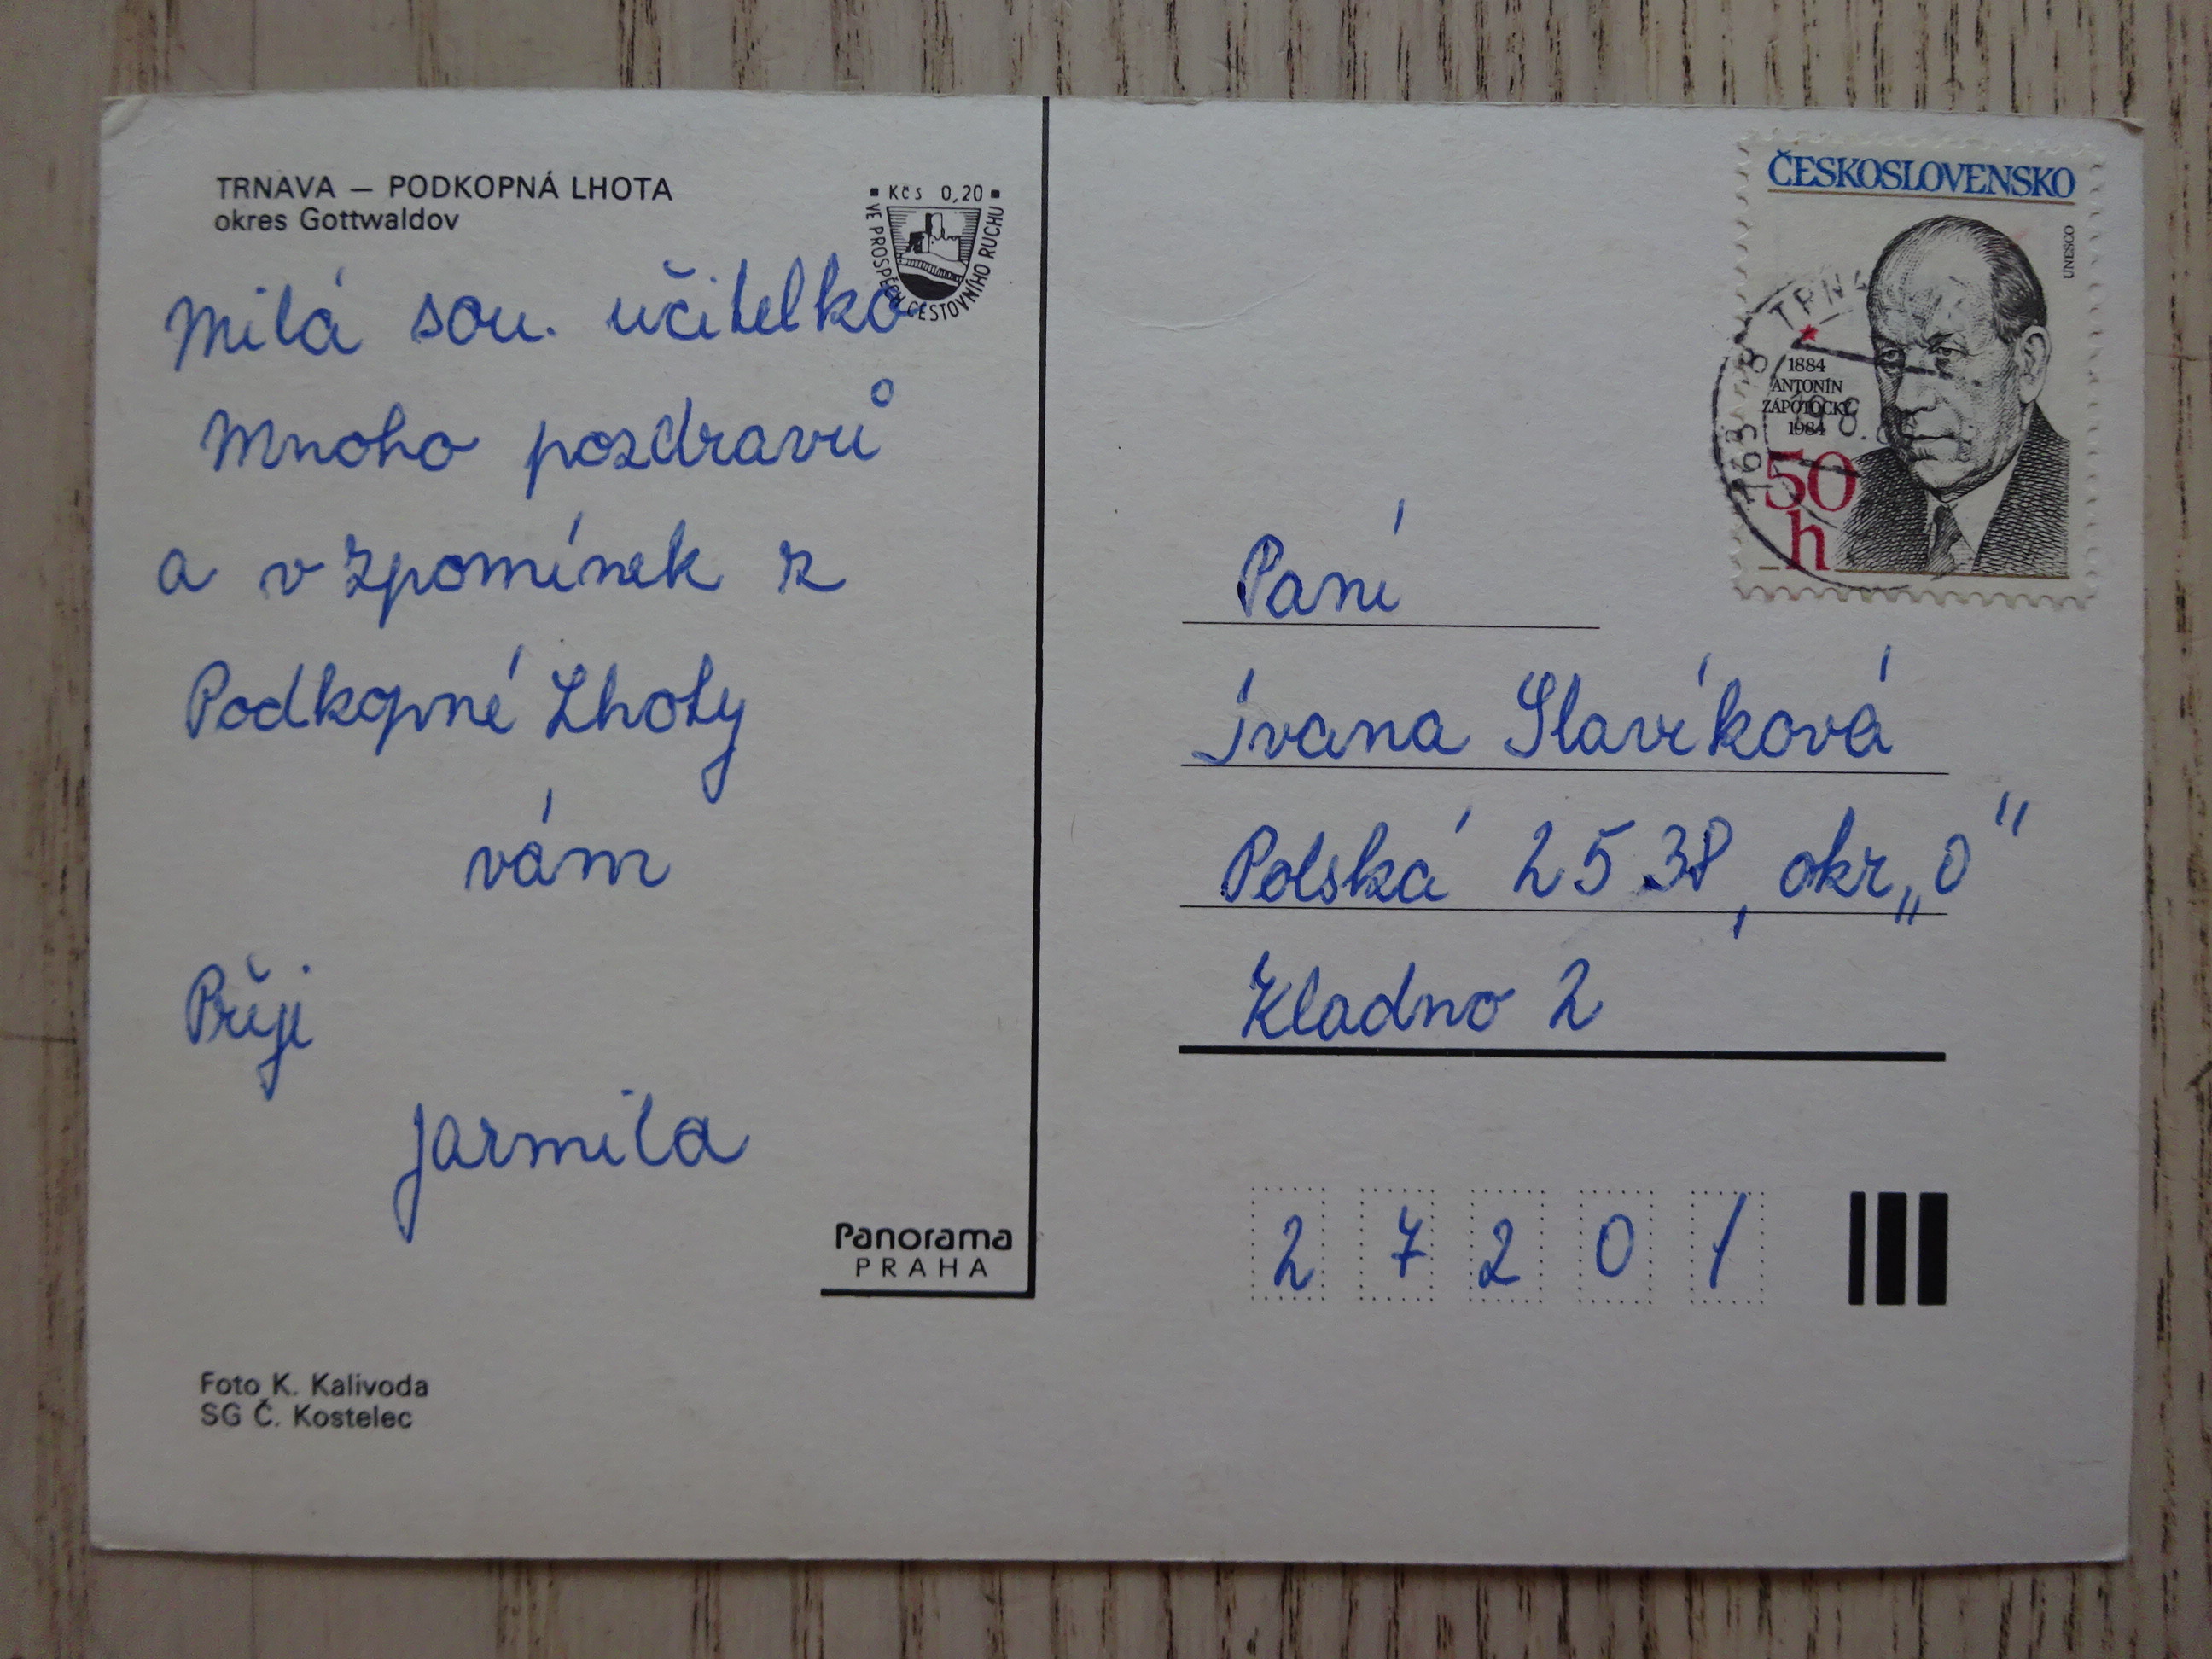 TRNAVA — PODKOPNÁ LHOTA
okres Gottwaldov
Kčs 0,20
VE PROSPĚCH CESTOVNÍHO RUCHU
Milá sou. učitelko
Mnoho pozdravů
a vzpomínek z
Podkopné Lhoty
vám
Přeji
Jarmila
Panorama
PRAHA
Foto K. Kalivoda
SG Č. Kostelec
ČESKOSLOVENSKO
UNESCO
1884
ANTONÍN
ZÁPOTOCKÝ
1984
50
h
763 18
Paní
Ivana Slavíková
Polská 2538, okr „0"
Kladno 2
27201